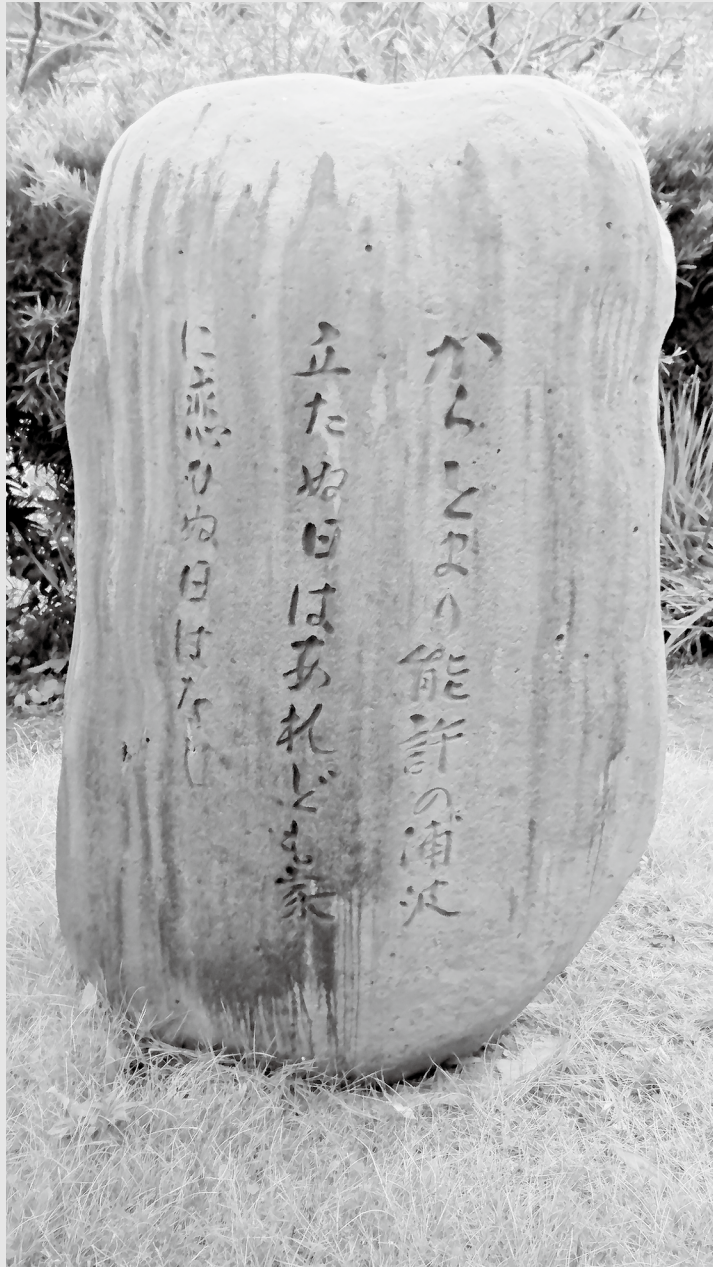 からどまり能許の浦波
立たぬ日はあれども家
に恋ひぬ日はなし